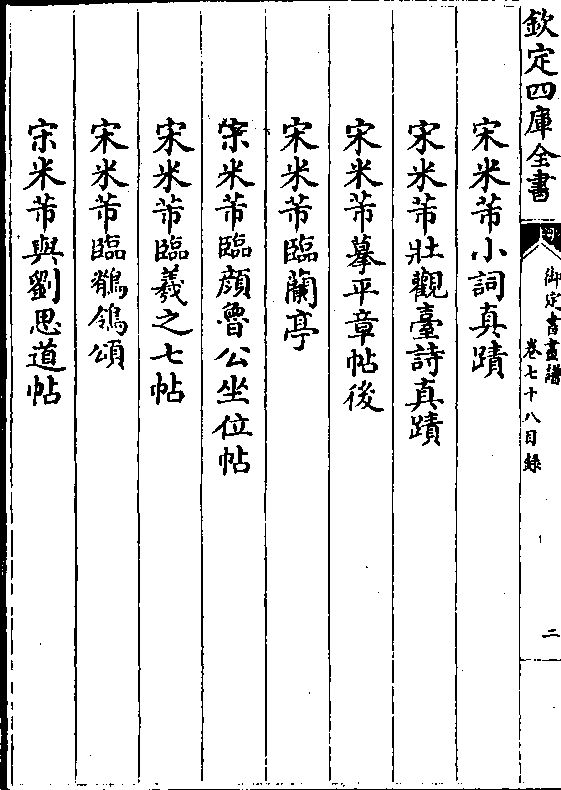 欽定四庫全書
御定書畫譜
卷七十八目錄
二
宋米芾小詞真蹟
宋米芾壯觀臺詩真蹟
宋米芾摹平章帖後
宋米芾臨蘭亭
宋米芾臨顏魯公坐位帖
宋米芾臨羲之七帖
宋米芾臨鶺鴒頌
宋米芾與劉思道帖